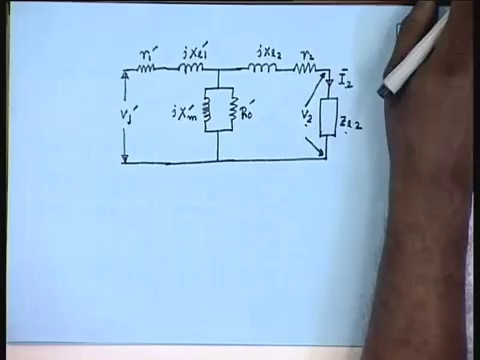 r₁′ jXℓ₁′ jXℓ₂ r₂
Ī₂
V₁′ jX′m R₀′ V₂ Zℓ₂